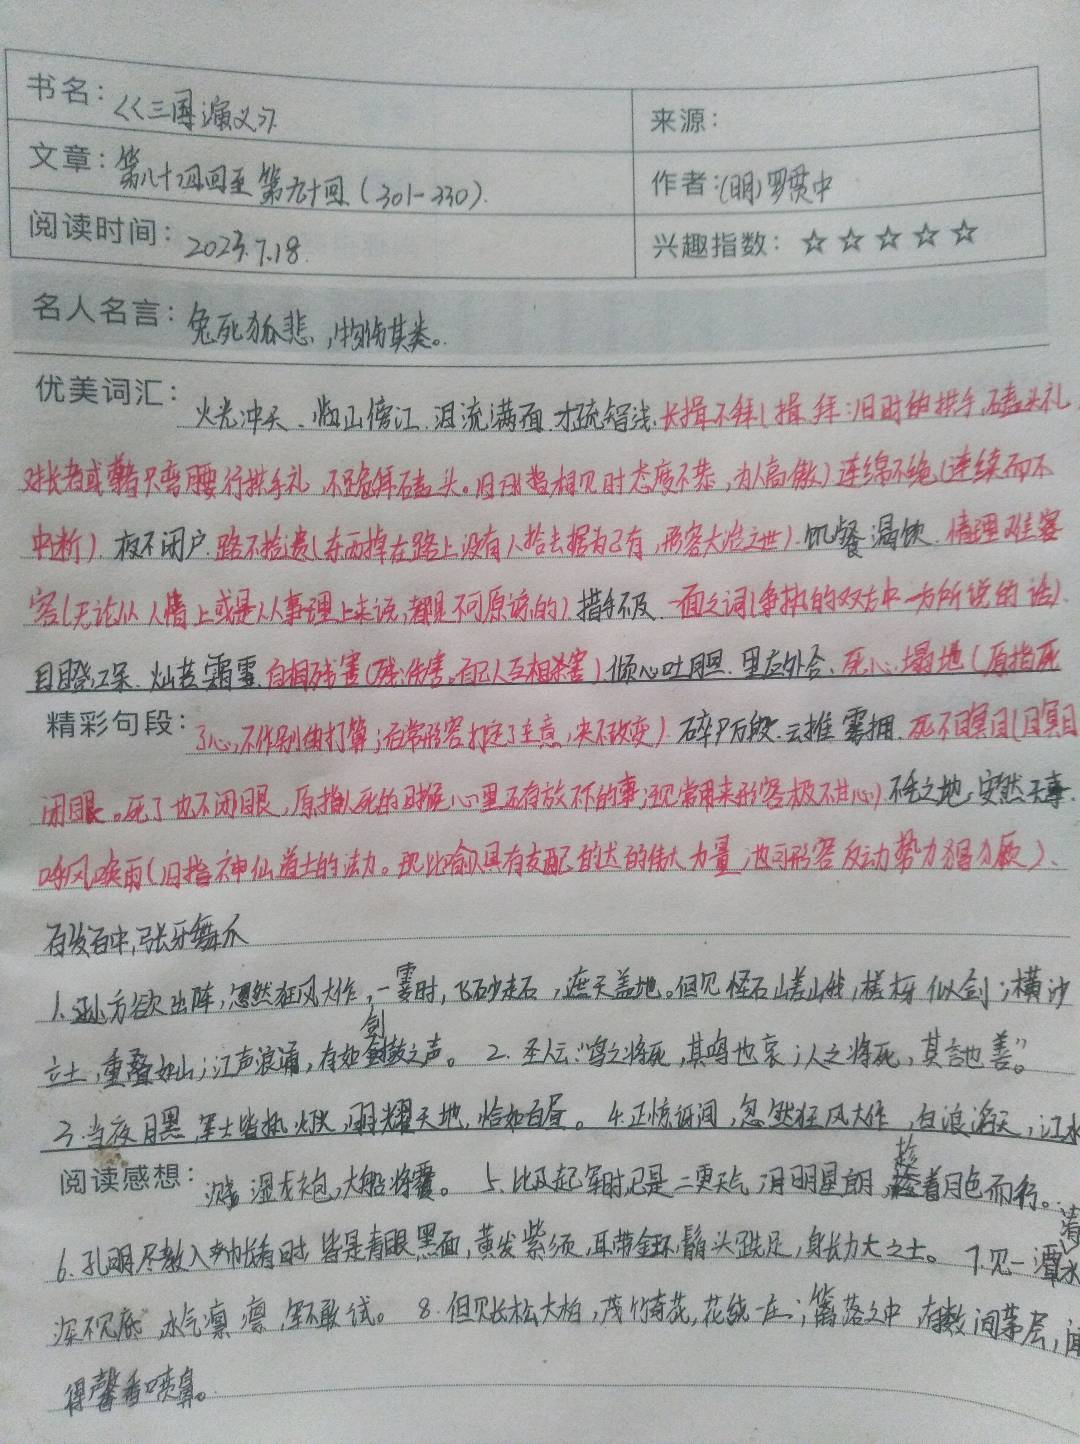 书名：《三国演义》
来源：
文章：第八十四回至第九十回（301-330）.
作者：（明）罗贯中
阅读时间：2023.7.18.
兴趣指数：☆☆☆☆☆
名人名言：兔死狐悲，物伤其类。
优美词汇：火光冲天、临山傍江、泪流满面、才疏智浅、长揖不拜（揖、拜：旧时的拱手、磕头礼
对长者或尊者只弯腰行拱手礼，不跪拜磕头。旧形容相见时态度不恭，为人高傲）连绵不绝（连续而不
中断）、夜不闭户、路不拾遗（东西掉在路上没有人拾去据为己有，形容大治之世）、饥餐渴饮、情理难容
容（无论从人情上或是从事理上来说，都是不可原谅的）措手不及、一面之词（争执的双方中一方所说的话）、
目瞪口呆、灿若霜雪、自相残害（残：伤害。自己人互相杀害）、倾心吐胆、里应外合、死心塌地（原指死
精彩句段：了心，不作别的打算；后常形容打定了主意，决不改变）碎尸万段、云推雾拥、死不瞑目（瞑目：
闭眼。死了也不闭眼，原指人死的时候心里还有放不下的事，现常用来形容极不甘心）不毛之地、安然无事、
呼风唤雨（旧指神仙道士的法力。现比喻具有支配自然的伟大力量，也可形容反动势力猖獗）、
百发百中，张牙舞爪
1.逊方欲出阵，忽然狂风大作，一霎时，飞砂走石，遮天盖地。但见怪石嵯峨，槎枒似剑；横沙
立土，重叠如山；江声浪涌，有如剑鼓之声。 2.圣人云：“鸟之将死，其鸣也哀；人之将死，其言也善”。
3.当夜月黑，军士皆执火炬，明耀天地，恰如白昼。 4.正惊讶间，忽然狂风大作，白浪滔天，江水
阅读感想：溅湿龙袍，大船将覆。 5.比及起军时，已是二更天气，月明星朗，趁着月色而行。
6.孔明尽教入帐看时，皆是青眼黑面，黄发紫须，耳带金环，鬅头跣足，身长力大之士。 7.见一潭清水
深不见底，水气凛凛，军不敢试。 8.但见长松大柏，茂竹奇花，环绕一庄；篱落之中，有数间茅屋，闻
得馨香喷鼻。